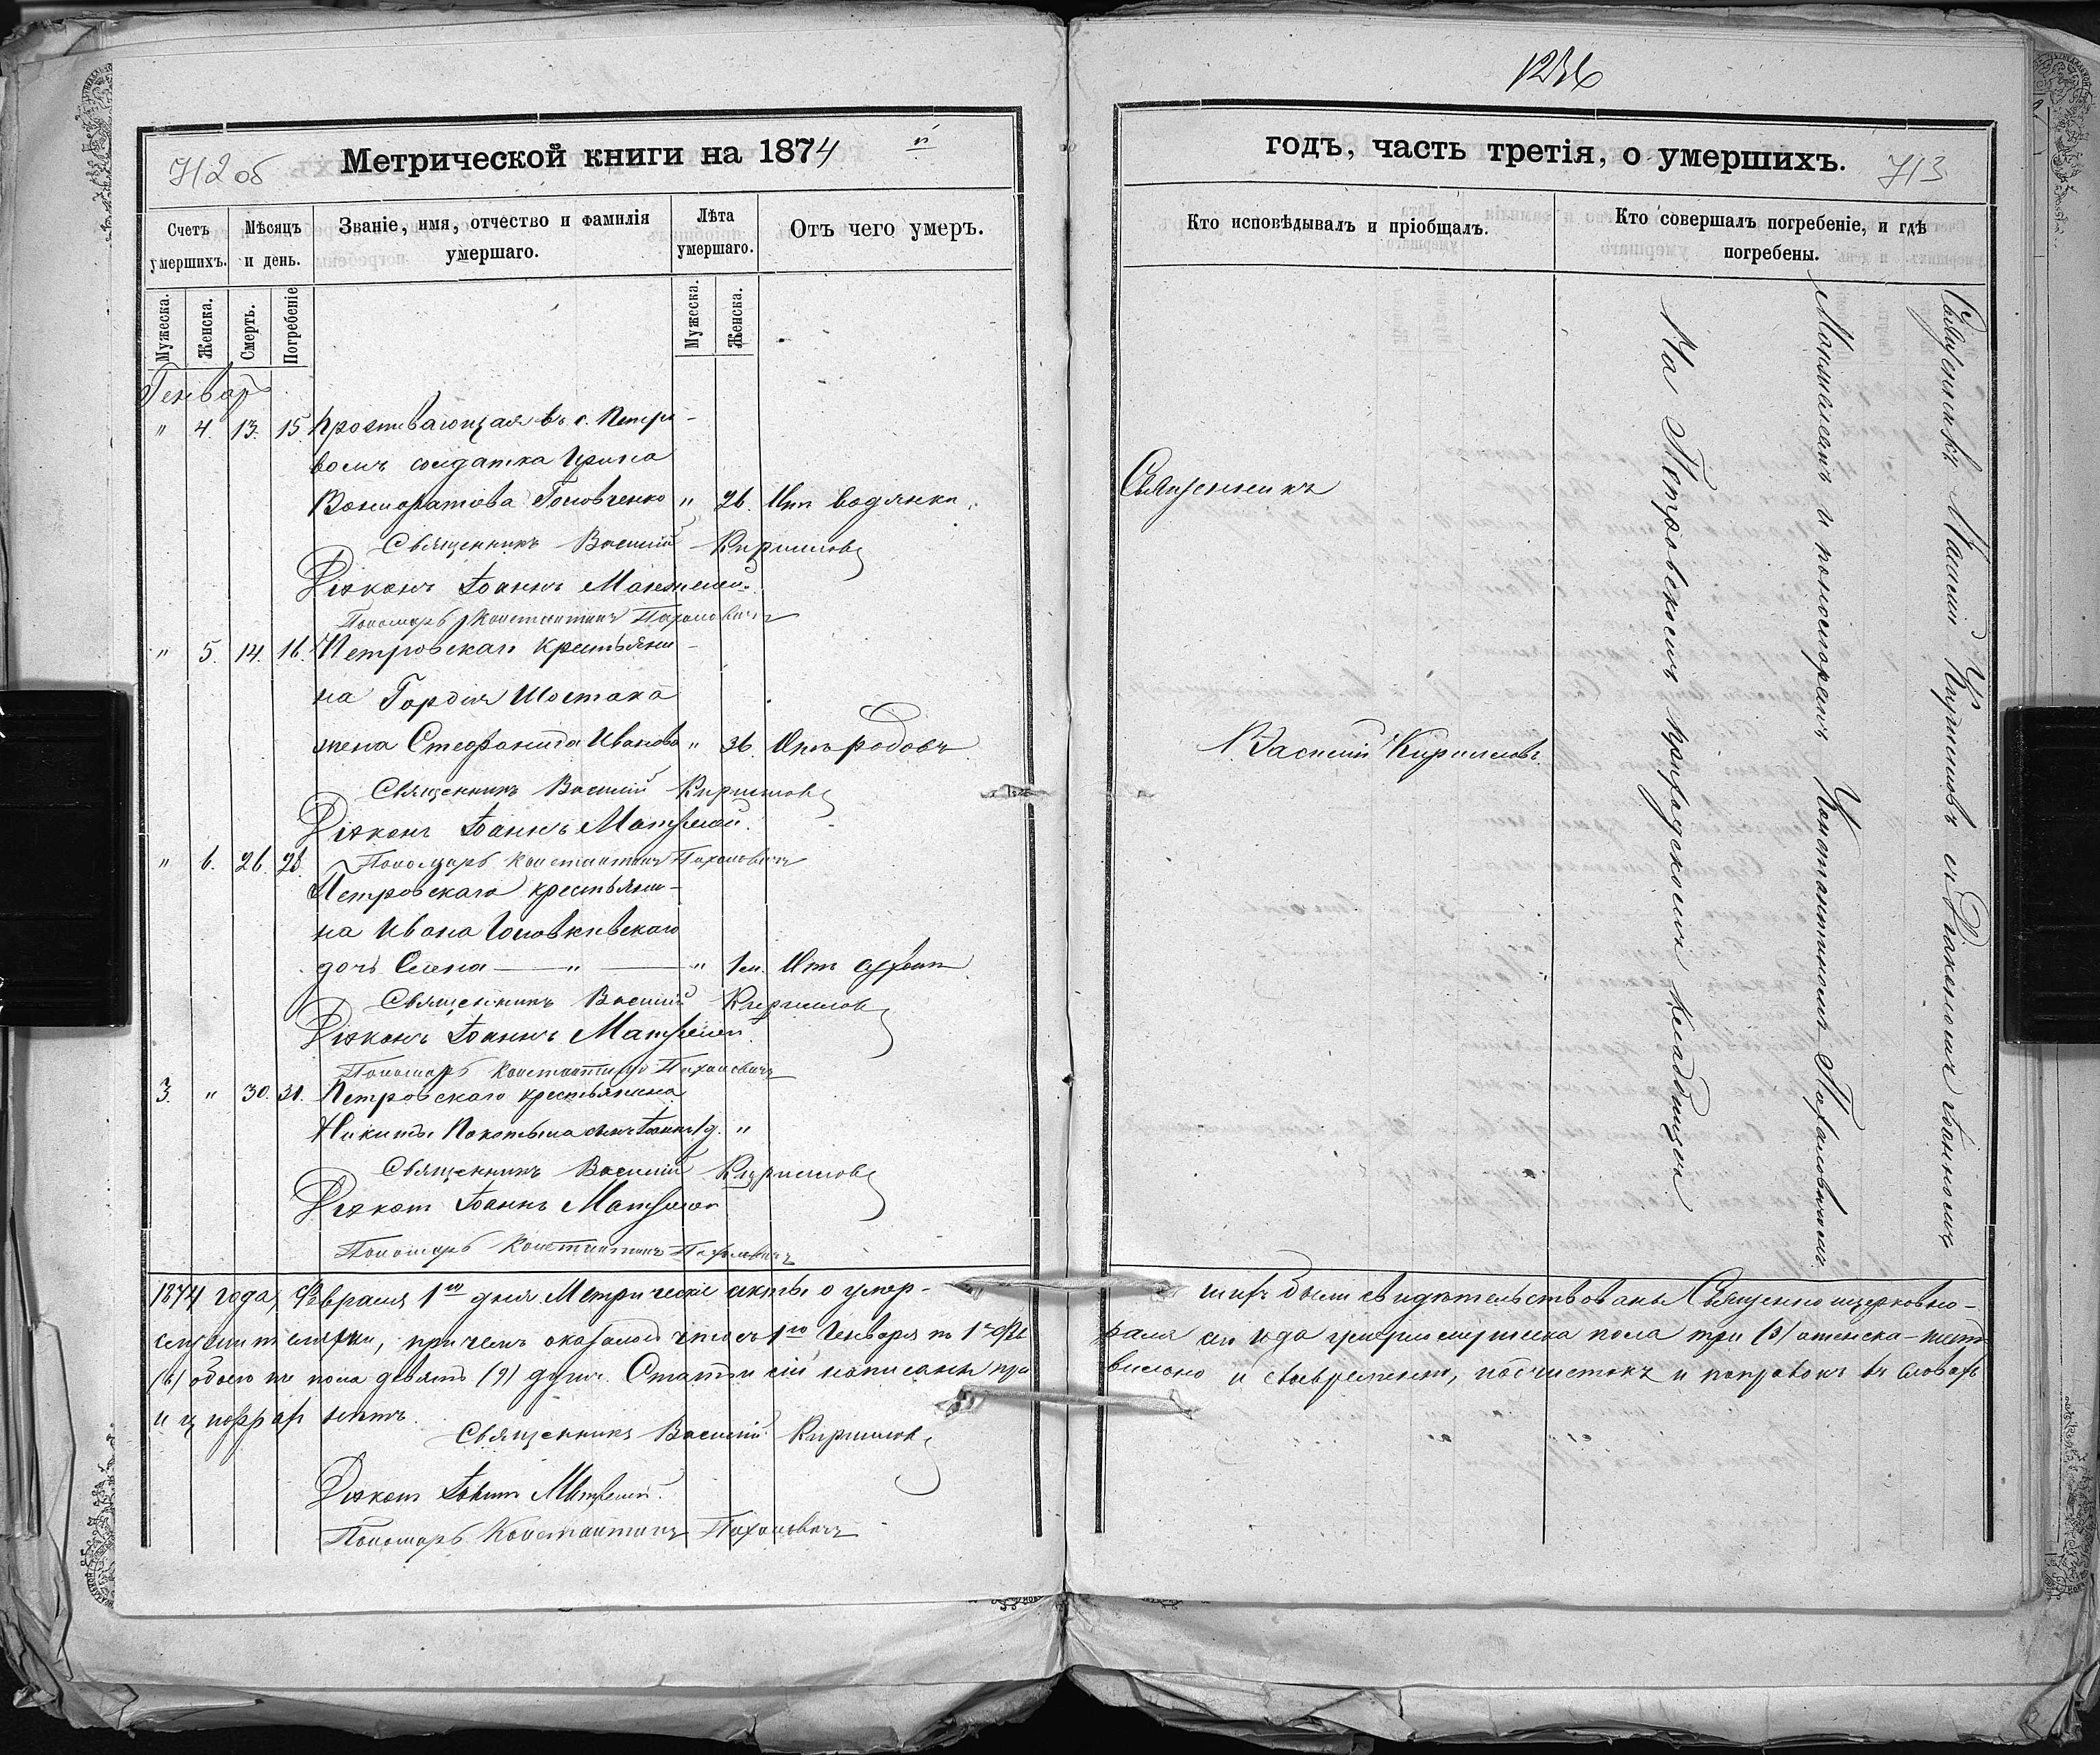 1236
712 об
Метрической книги на 1874 й
годъ, часть третія, о умершихъ.
713
Счетъ умершихъ.
Мѣсяцъ и день.
Званіе, имя, отчество и фамилія умершаго.
Лѣта умершаго.
Отъ чего умеръ.
Кто исповѣдывалъ и пріобщалъ.
Кто совершалъ погребеніе, и гдѣ погребены.
Мужеска.
Женска.
Смерть.
Погребеніе
Мужеска.
Женска.
Генварь
" 4. 13. 15. Проживающая въ с. Петро-
вомъ солдатка Ирина
Головченко " 26. Отъ водянки.
Священникъ Василій Кирилловъ
Діаконъ Іоаннъ
Пономарь Константинъ Пахаловичъ
" 5. 14. 16. Петровскаго крестьяни-
на Гордія Шостака
жена Стефанида Иванова " 36. Отъ родовъ
Священникъ Василій Кирилловъ
Діаконъ Іоаннъ
Пономарь Константинъ Пахаловичъ
" 6. 26. 28. Петровскаго крестьяни-
на Ивана Головкивскаго
дочь Елена " " 1 м. Отъ
Священникъ Василій Кирилловъ
Діаконъ Іоаннъ
Пономарь Константинъ Пахаловичъ
3. " 30. 31. Петровскаго крестьянина
Никиты сынъ Іоаннъ "
Священникъ Василій Кирилловъ
Діаконъ Іоаннъ
Пономарь Константинъ Пахаловичъ
Священникъ
Василій Кирилловъ.
Священникъ Василій Кирилловъ съ Діакономъ Іоанномъ
и пономаремъ Константиномъ Пахаловичемъ.
На Петровскомъ приходскомъ кладбищѣ
1874 года, Февраля 1го дня Метрическіе акты о умер-
шихъ были свидѣтельствованы Священноцерковно-
служителями, причемъ оказалось что съ 1го Генваря по 1е Фев-
раля сего года умерло мужеска пола три (3) женска шесть
(6) обоего же пола девять (9) душъ. Статьи сіи написаны пра
вильно и своевременно, подчистокъ и поправокъ въ словахъ
и цифрахъ нѣтъ.
Священникъ Василій Кирилловъ
Діаконъ Іоаннъ
Пономарь Константинъ Пахаловичъ